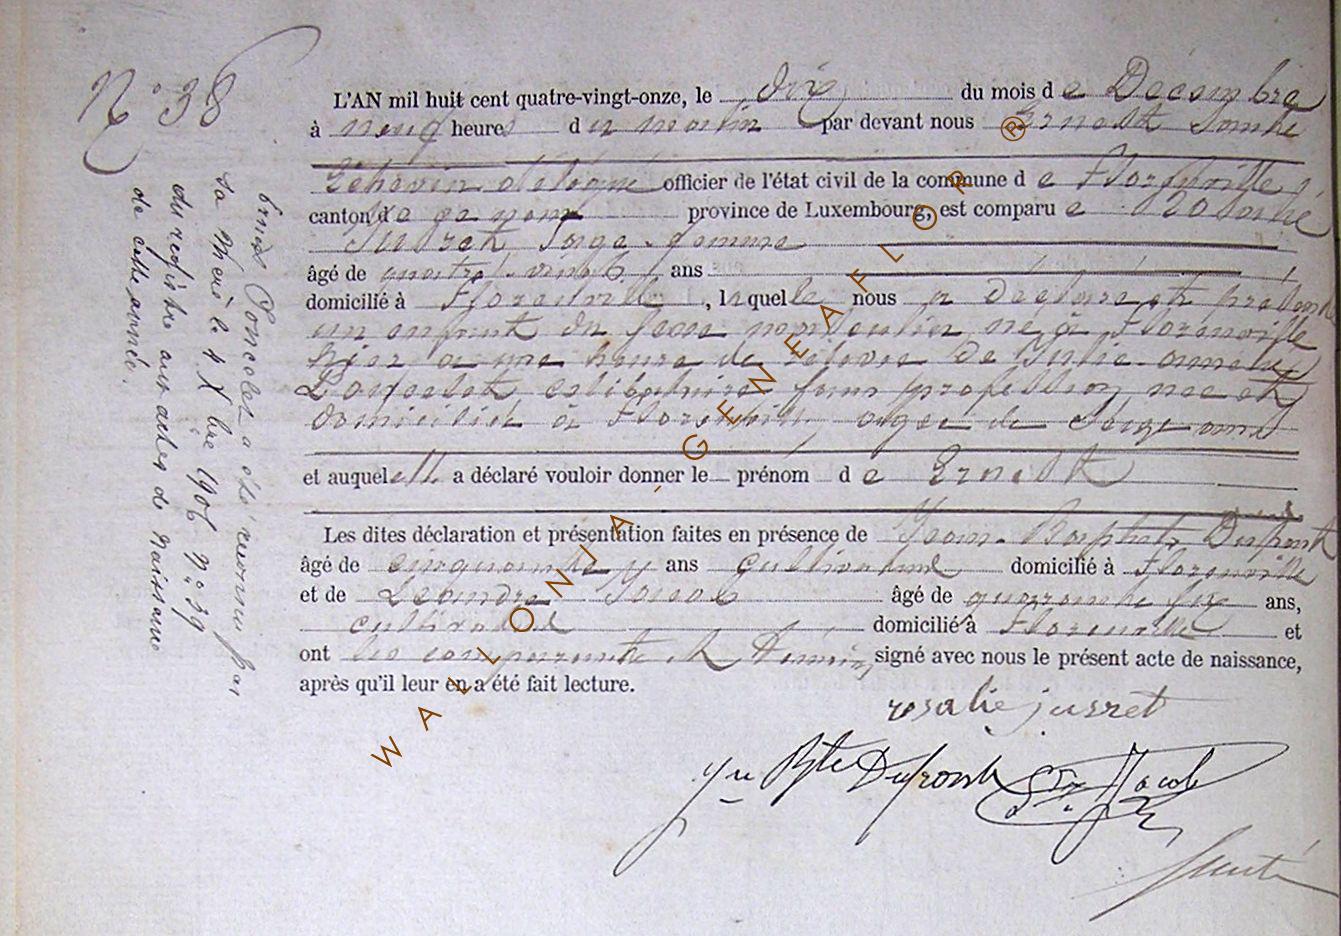 N° 38
L'AN mil huit cent quatre-vingt-onze, le dix du mois de Decembre
à neuf heures du matin par devant nous Ernest
Echevin délégué officier de l'état civil de la commune de Florenville
canton de province de Luxembourg, est comparue Rosalie
Jusret Sage-femme
âgé de quatre-vingt ans
domicilié à Florenville, laquelle nous a déclaré et présenté
un enfant du sexe masculin né à Florenville
hier a une heure de relevée de Julie
célibataire sans profession née et
domiciliée à Florenville agée de ans
et auquel elle a déclaré vouloir donner le prénom de Ernest
Les dites déclaration et présentation faites en présence de Jean-Baptiste Dufront
âgé de cinquante ans Cultivateur domicilié à Florenville
et de Léandre Jacob âgé de quarante six ans,
cultivateur domicilié à Florenville et
ont les comparante et témoins signé avec nous le présent acte de naissance,
après qu'il leur en a été fait lecture.
rosalie jusret
Jn Bte Dufront Jacob
a été reconnu par
sa Mère le 4 Xbre 1906 N° 39
du registre aux actes de naissance
de cette année.
WALLONIA - GENEAFLOR ®